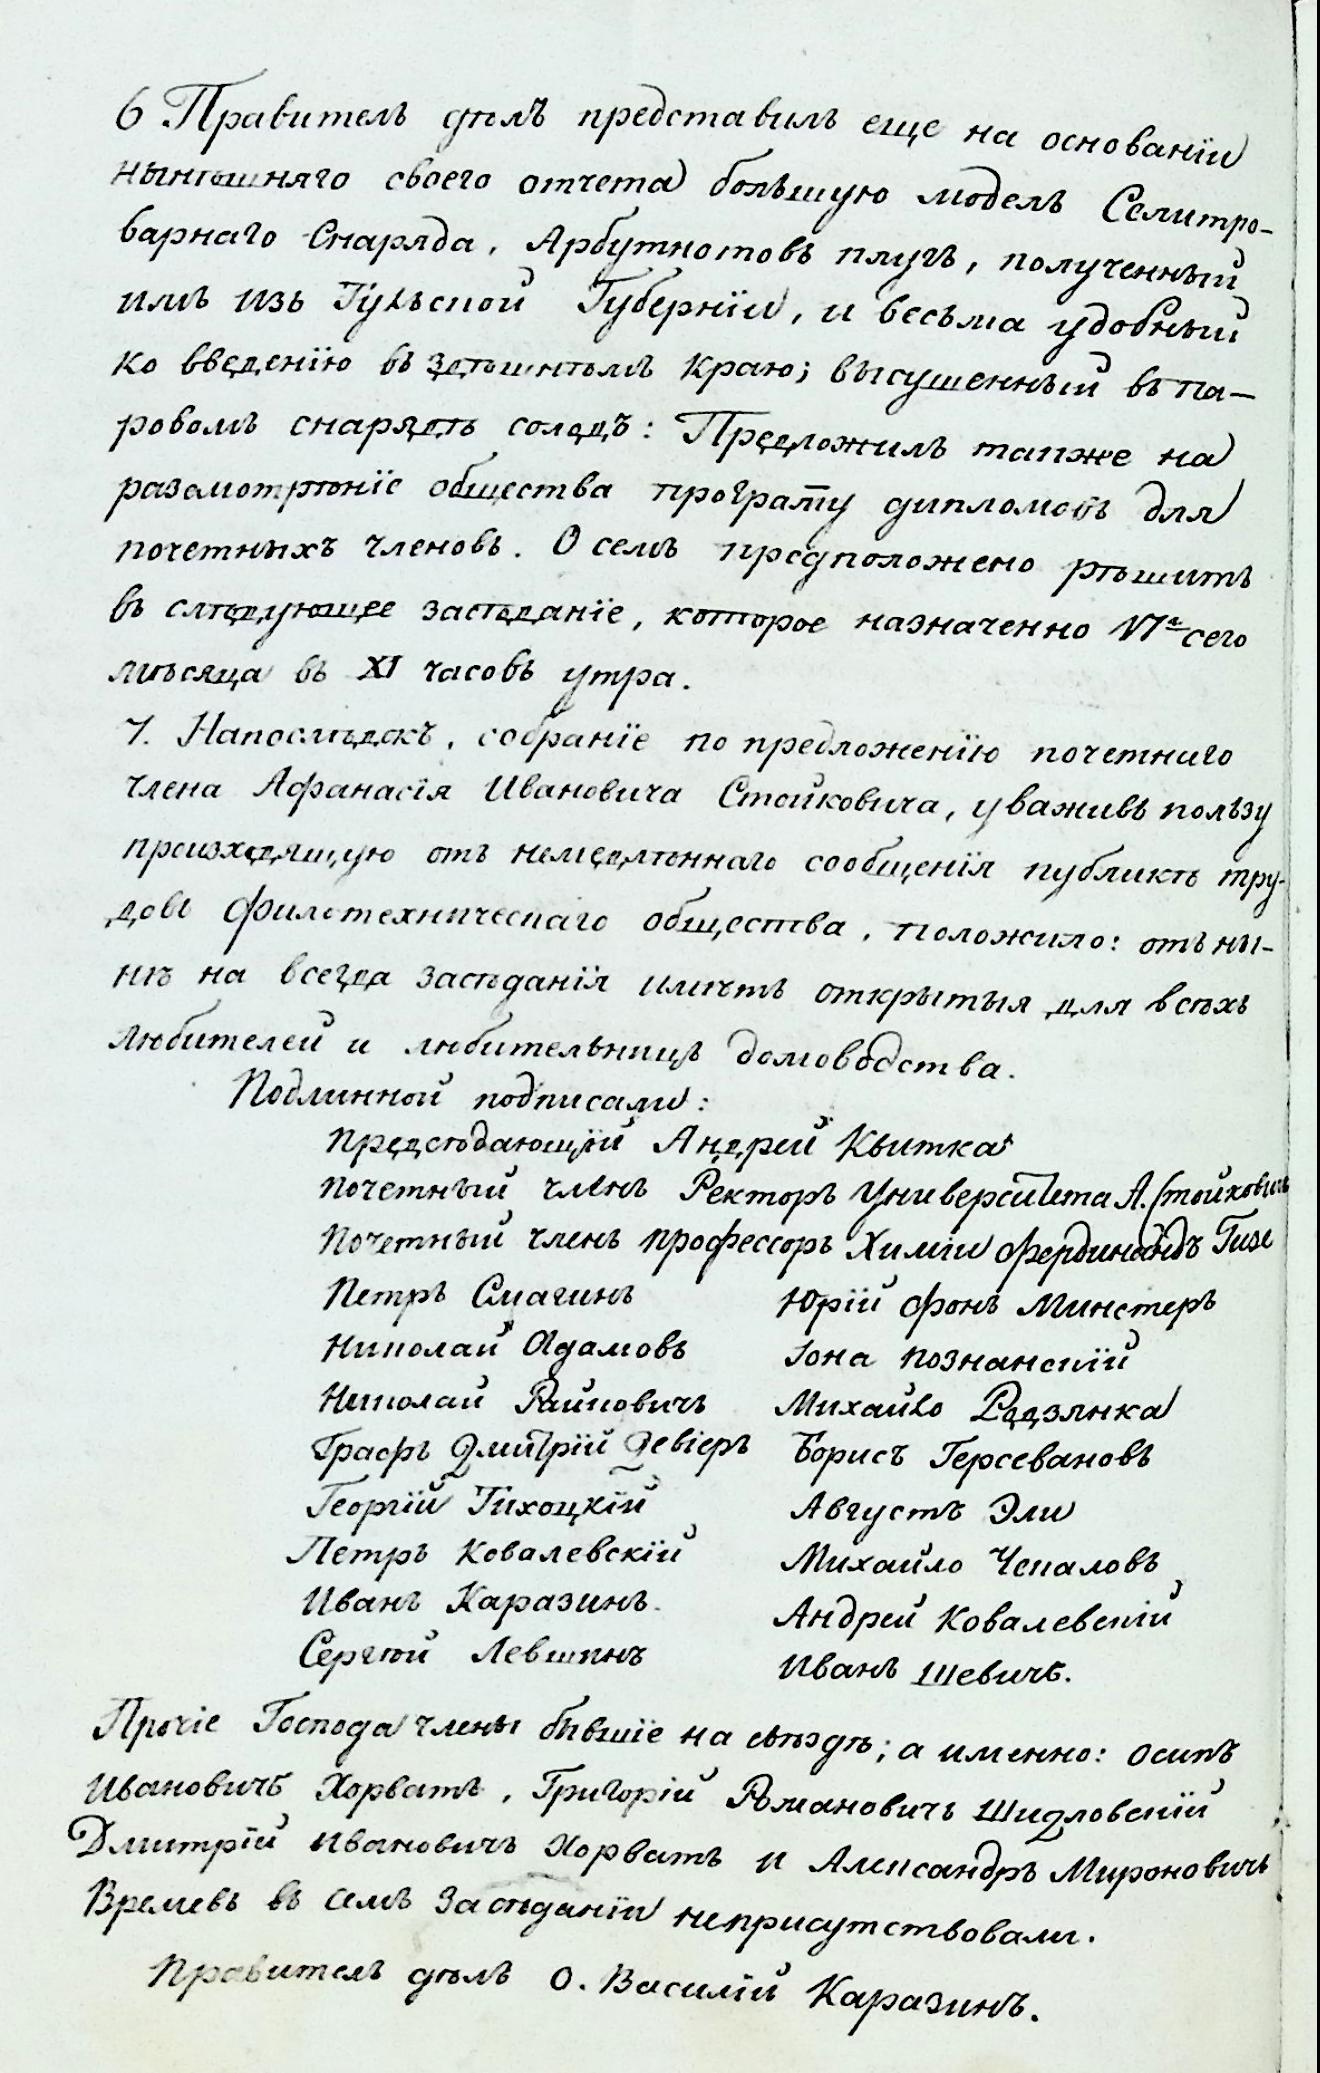 6 Правитель дѣлъ представилъ еще на основанїи
нынѣшняго своего отчета большую модель Селитро-
варнаго Снаряда, Арбутнотовъ плугъ, полученный
имъ изъ Тульской Губернїи, и весьма удобный
ко введенїю въ здѣшнѣмъ краю; высушенный въ па-
ровомъ снарядѣ солодъ: Предложилъ также на
разсмотрѣнїе общества програму дипломовъ для
почетныхъ членовъ. О семъ предположено рѣшить
въ слѣдующее засѣданїе, которое назначенно VIᵍᵒ сего
мѣсяца въ XI часовъ утра.
7. Напослѣдокъ, собранїе по предложенїю почетнаго
члена Афанасїя Ивановича Стойковича, уваживъ пользу
произходящую отъ немедлѣннаго сообщенїя публикѣ тру-
довъ филотехническаго общества, положило: отъ ны-
нѣ на всегда засѣданїя имѣть открытыя для всѣхъ
любителей и любительницъ домоводства.
Подлинной подписали:
предсѣдающїй Андрей Квитка
почетный членъ Ректоръ Университета А. Стойковичь
Почетный членъ профессоръ Химїи фердинандъ Гизе
Петръ Смагинъ Юрїй фонъ Минстеръ
Николай Адамовъ Іона познанскїй
Николай Райковичь Михайло Родзянка
Графъ Дмитрїй Девїеръ Борисъ Герсевановъ
Георгїй Тихоцкїй Августъ Эли
Петръ Ковалевскїй Михайло Чепаловъ
Иванъ Каразинъ. Андрей Ковалевскїй
Сергѣй Левшинъ Иванъ Шевичъ.
Прочїе Господа члены бывшїе на съѣздѣ; а именно: Осипъ
Ивановичъ Хорватъ, Григорїй Романовичь Шидловскїй
Дмитрїй Ивановичъ Хорватъ и Александръ Мироновичь
Времевъ въ семъ Засѣданїи неприсутствовали.
Правитель дѣлъ О. Василїй Каразинъ.